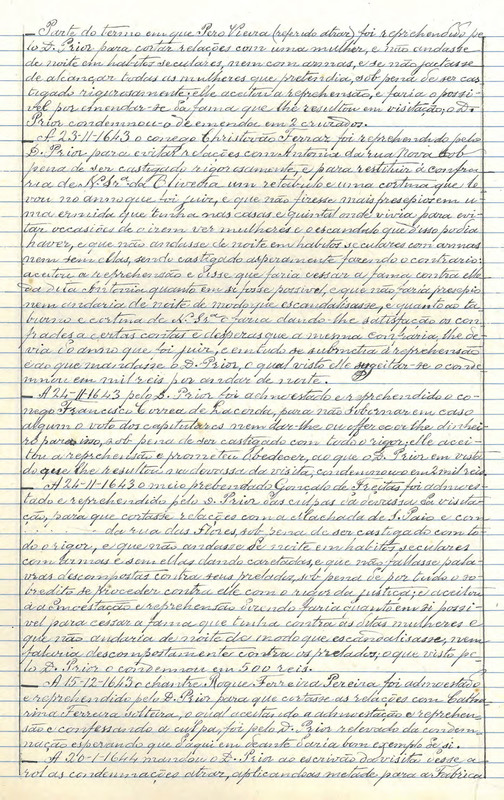 Parte do termo em que Pero Vieira (referido atraz) foi reprehendido pe-
lo D. Prior para cortar relações com uma mulher, e não andasse
de noite em habitos seculares, nem com armas, e se não jactasse
de alcançar todas as mulheres que pretendia, sob pena de ser cas-
tigado rigorosamente; elle aceitou a reprehensão, e faria o possi-
vel por emendar-se da fama que lhe resultou em visitação; o D.
Prior condemnou-o de emenda em 2 cruzados.
A 23-11-1643 o conego Christovão Ferraz foi reprehendido pelo
D. Prior para evitar relações com Antonia da rua Nova sob
pena de ser castigado rigorosamente, e para restituir á confra-
ria de N. Srª da Oliveira um retabulo e uma cortina que le-
vou no anno que foi juiz, e que não fizesse mais presepio em u-
ma ermida que tinha nas casas e quintal onde vivia, para evi-
tar occasiões de o irem ver mulheres e o escandalo que d'isso podia
haver, e que não andasse de noite em habitos seculares com armas
nem sem ellas, sendo castigado asperamente fazendo o contrario;
aceitou a reprehensão e disse que faria cessar a fama contra elle
da dita Antonia quanto em si fosse possivel, e que não faria presepio
nem andaria de noite de modo que escandalisasse, e quanto ao ta-
burno e cortina de N. Srª o faria dando-lhe satisfação os com-
padres a certas contas e despezas que a mesma confraria lhe de-
via do anno que foi juiz, e em tudo se submettia á reprehensão
e ao que mandasse o D. Prior, o qual visto elle sugeitar-se o conde-
mnou em mil reis por andar de noite.
A 24-11-1643 pelo D. Prior foi admoestado e reprehendido o co-
nego Francisco Correa de Lacerda, para não subornar em caso
algum o voto dos capitulares nem dar-lhe ou offerecer lhe dinhei-
ro para isso, sob pena de ser castigado com todo o rigor; elle acei-
tou a reprehensão e prometteu obedecer, ao que o D. Prior em vista
do que lhe resultou na devassa da visita, condemnou-o em 2 mil reis.
A 24-11-1643 o meio prebendado Gonçalo de Freitas foi admoes-
tado e reprehendido pelo D. Prior das culpas da devassa da visita-
ção, para que cortasse relações com a Machada de S. Paio e com
da rua das Flores, sob pena de ser castigado com to-
do o rigor, e que não andasse de noite em habitos seculares
com armas e sem ellas dando caretadas, e que não fallasse pala-
vras descompostas contra seus prelados, sob pena de por tudo o so-
bredito se proceder contra elle com o rigor da justiça; e aceitou
a admoestação e reprehensão dizendo faria quanto em si possi-
vel para cessar a fama que tinha contra as ditas mulheres e
que não andaria de noite de modo que escandalisasse, nem
fallaria descompostamente contra os prelados, o que visto pe-
lo D. Prior o condemnou em 500 reis.
A 15-12-1643 o chantre Roque Ferreira Pereira foi admoestado
e reprehendido pelo D. Prior para que cortasse as relações com Catha-
rina Ferreira solteira, o qual aceitando a admoestação e reprehen-
são e confessando a culpa, foi pelo D. Prior relevado da condem-
nação esperando que d'aqui em deante daria bom exemplo de si.
A 20-1-1644 mandou o D. Prior ao escrivão da visita désse a
rol as condemnações atraz, aplicando as metade para a Fabrica